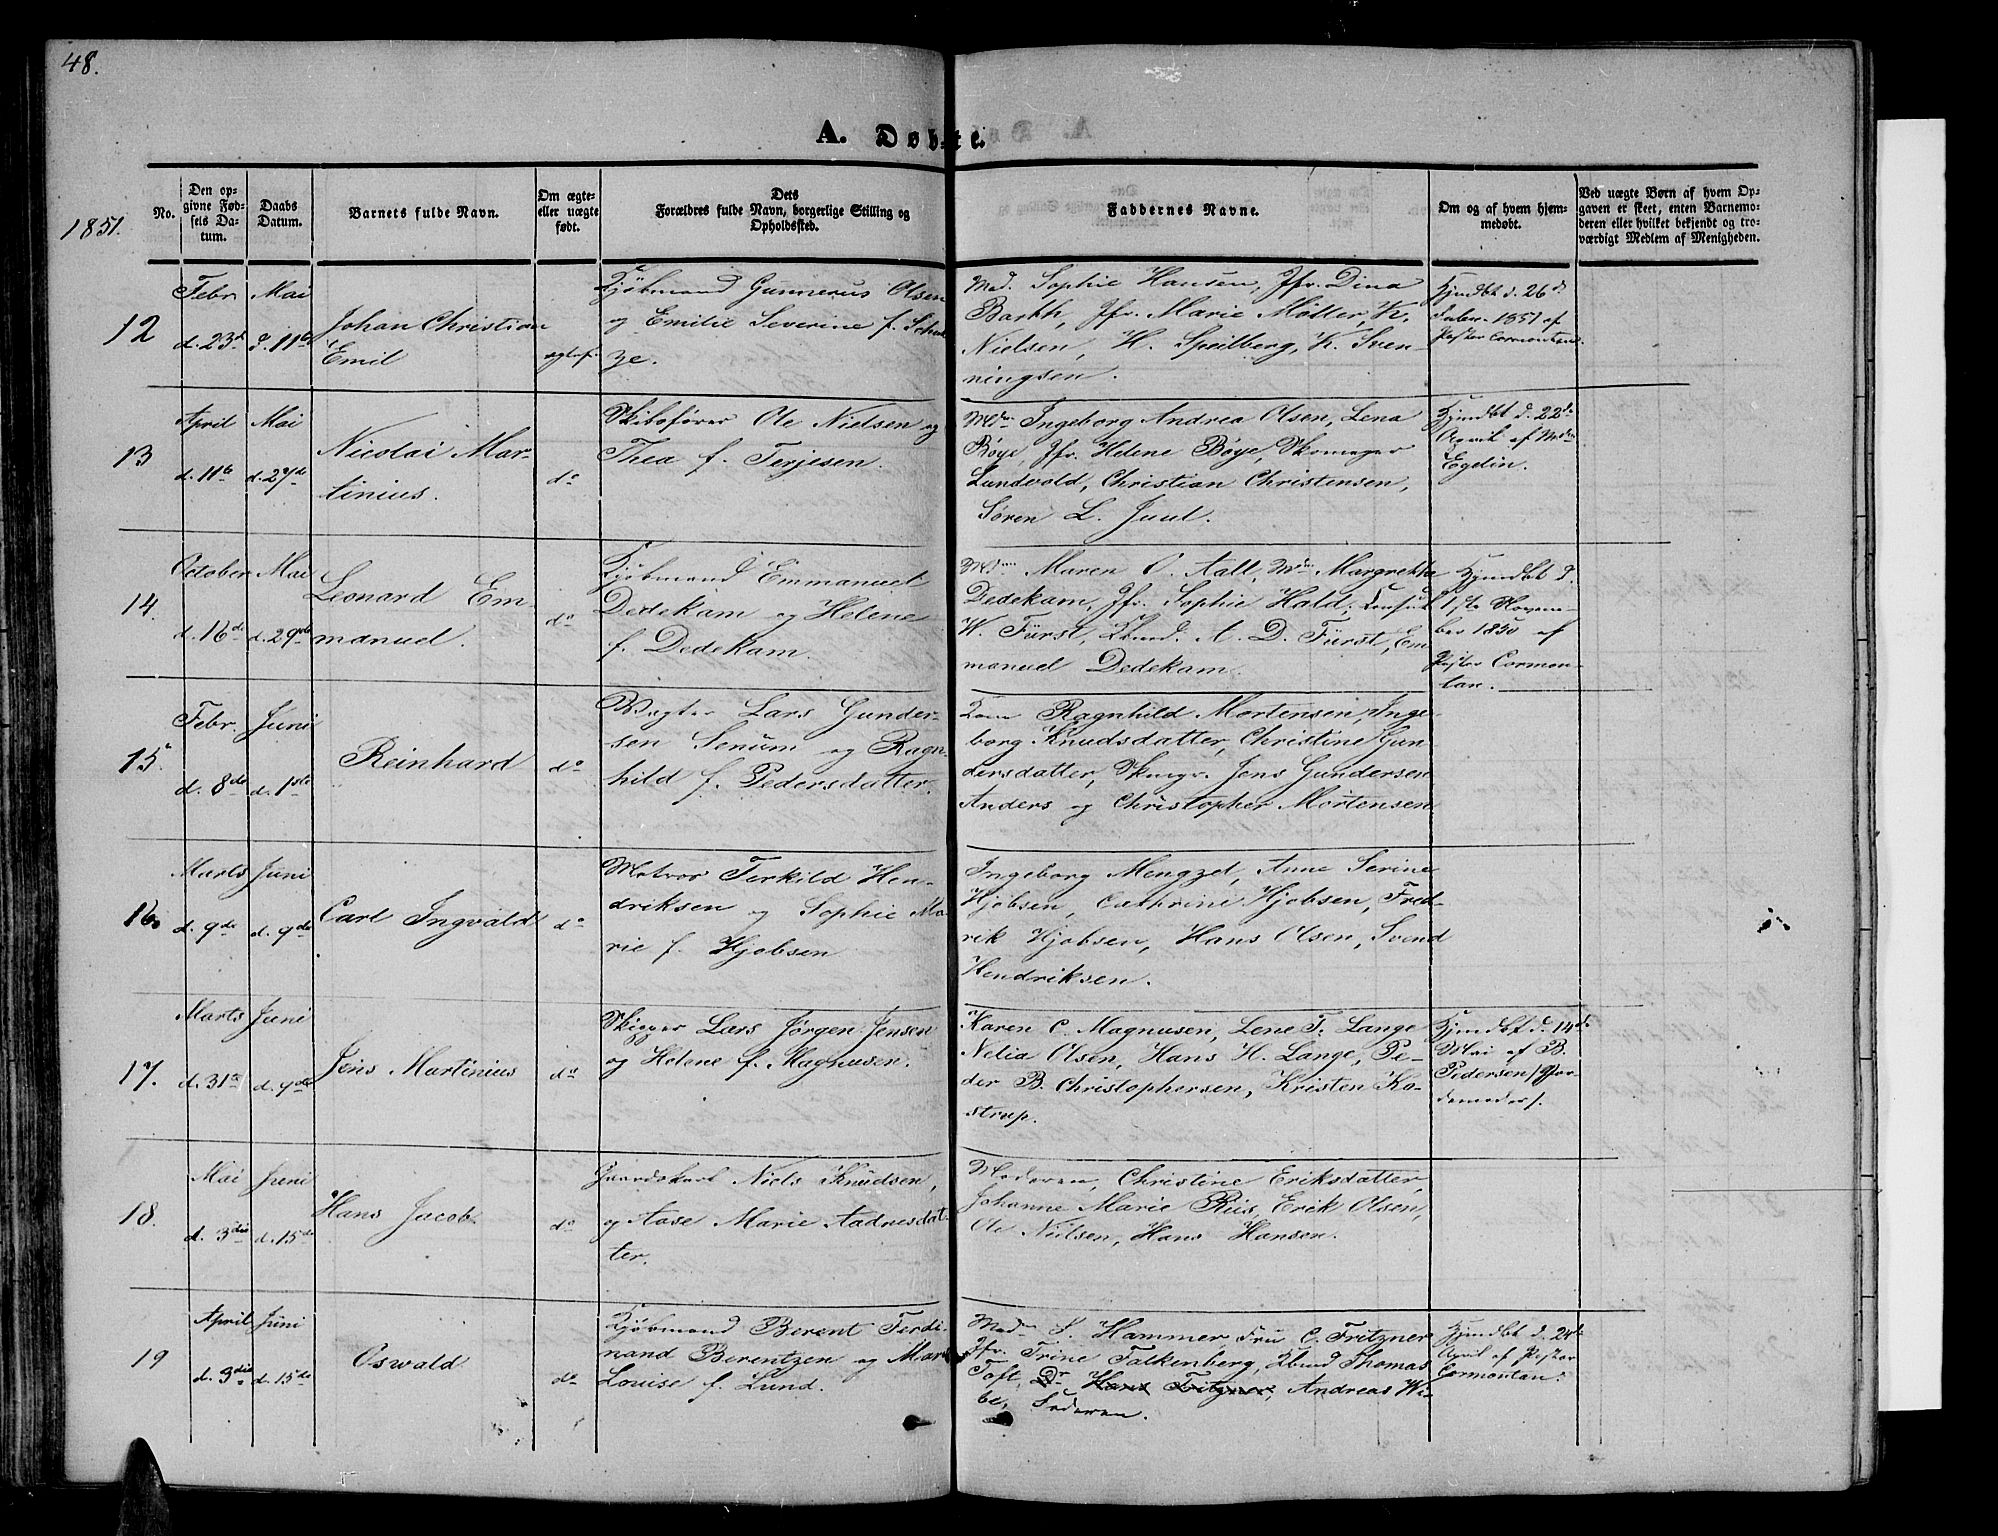 48.
A. Døbte.
1851.
No.
Den opgivne Fødsels Datum.
Daabs Datum.
Barnets fulde Navn.
Om ægte- eller uægte født.
Dets Forældres fulde Navn, borgerlige Stilling og Opholdssted.
Faddernes Navne.
Om og af hvem hjemmedøbt.
Ved uægte Børn af hvem Opgaven er skeet, enten Barnemoderen eller hvilket bekjendt og troværdigt Medlem af Menigheden.
12
Febr
d. 23d
Mai
d. 11te
Johan Christian
Emil
ægtef.
Kjøbmand Gunnerus Olsen
og Emilie Severine f. Schul
ze.
Mad. Sophie Hansen, Jfr. Dina
Barth, Jfr. Marie Møller, K.
Nielsen, H. Speilberg, K. Sven-
ningsen.
Hjmdbt d. 26d
1851 af
Pastor Cormontan.
13
April
d. 11te
Mai
d. 27de
Nicolai Mar-
tinius.
do
Skibsfører Ole Nielsen og
Thea f. Terjesen.
Mdm Ingeborg Andrea Olsen, Lena
Bøye, Jfr. Helene Bøye, Skomager
Lundvold, Christian Christensen,
Søren L. Juul.
Hjmdbt d. 22de
April af Mdm
Egelin.
14.
October
d. 16de
Mai
d. 29de
Leonard Em-
manuel.
do
Kjøbmand Emmanuel
Dedekam og Helene
f. Dedekam.
Mdm Maren O. Aall, Mdm Margrethe
Dedekam, Jfr. Sophie Hald, Consul
W. Fürst, Kbmd. A. D. Fürst, Em
manuel Dedekam.
Hjmdbt d.
1ste Novem-
ber 1850 af
Pastor Cormon-
tan.
15.
Febr.
d. 8de
Juni
d. 1ste
Reinhard
do
Vægter Lars Gunder-
sen Senum og Ragn-
hild f. Pedersdatter.
Kone Ragnhild Mortensen, Inge-
borg Knudsdatter, Christine Gun
dersdatter, Skmgr. Jens Gundersen
Anders og Christopher Mortensen
16.
Marts
d. 9de
Juni
d. 9de
Carl Ingvald
do
Matros Terkild Hen-
driksen og Sophie Ma-
rie f. Hjobsen
Ingeborg Mengzel, Anne Serine
Hjobsen, Cathrine Hjobsen, Fred-
rik Hjobsen, Hans Olsen, Svend
Hendriksen.
17.
Marts
d. 31te
Juni
d. 9de
Jens Martinius
do
Skipper Lars Jørgen Jensen
og Helene f. Magnusen.
Karen C. Magnusen, Lene T. Lange
Nelia Olsen, Hans H. Lange, Pe-
der B. Christophersen, Kristen Ka-
strup.
Hjmdbt d. 14de
Mai af B.
Pedersen (Jor-
demoder).
18.
Mai
d. 3die
Juni
d. 15de
Hans Jacob
do
Gaardskarl Niels Knudsen,
og Aase Marie Aadnesdat-
ter.
Moderen, Christine Eriksdatter,
Johanne Marie Riis, Erik Olsen,
Ole Nielsen, Hans Hansen.
19
April
d. 3die
Juni
d. 15de
Oswald
do
Kjøbmand Berent Ferdi-
nand Berentzen og Marie
Louise f. Lund.
Mad. S. Hammer Fru C. Fritzner
Jfr. Trine Falkenberg, Kbmd Thomas
Toft, Dr Hans Fritzner, Andreas Wi-
be, Faderen.
Hjmdbt d. 24de
April af Pastor
Cormontan.